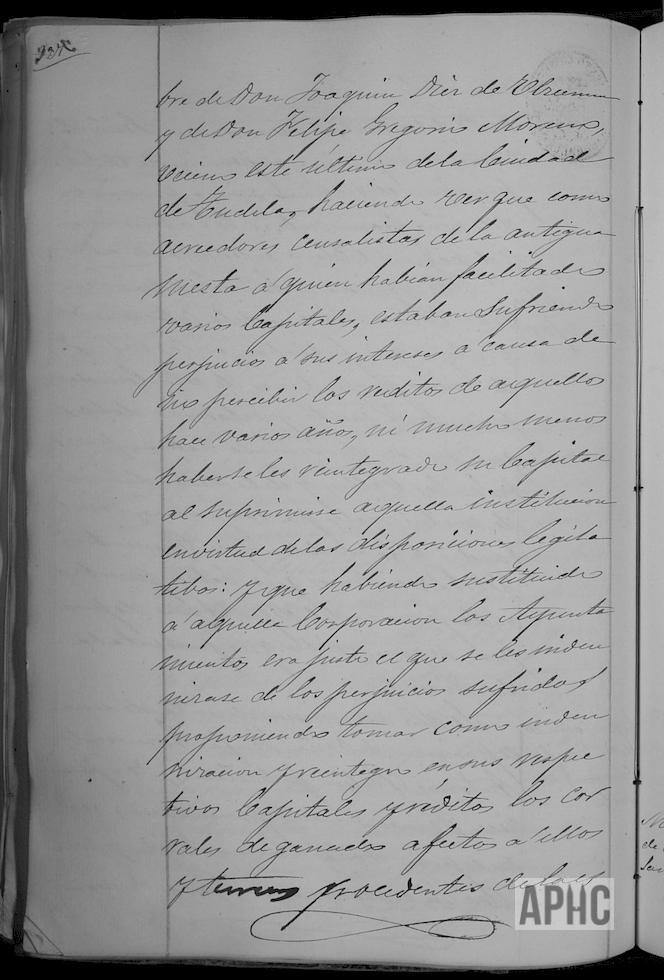 bre de Don Joaquin Dier de Ulzurrun
y de Don Felipe Gregorio Moreno,
vecino este último de la Ciudad
de Tudela, haciendo ver que como
acreedores censalistas de la antigua
Mesta á quien habian facilitado
varios Capitales, estaban sufriendo
perjuicios á sus intereses á causa de
no percibir los reditos de aquellos
hace varios años, ni mucho menos
haberseles reintegrado su Capital
al suprimirse aquella institucion
en virtud de las disposiciones legisla
tibas: y que habiendo sustituido
á aquella Corporacion los Ayunta
mientos era justo el que se les indem
nizase de los perjuicios sufridos
proponiendo tomar como indem
nizacion y reintegro en sus respec
tivos Capitales y réditos los cor
rales de ganado afectos á ellos
y terrenos procedentes de la es
APHC